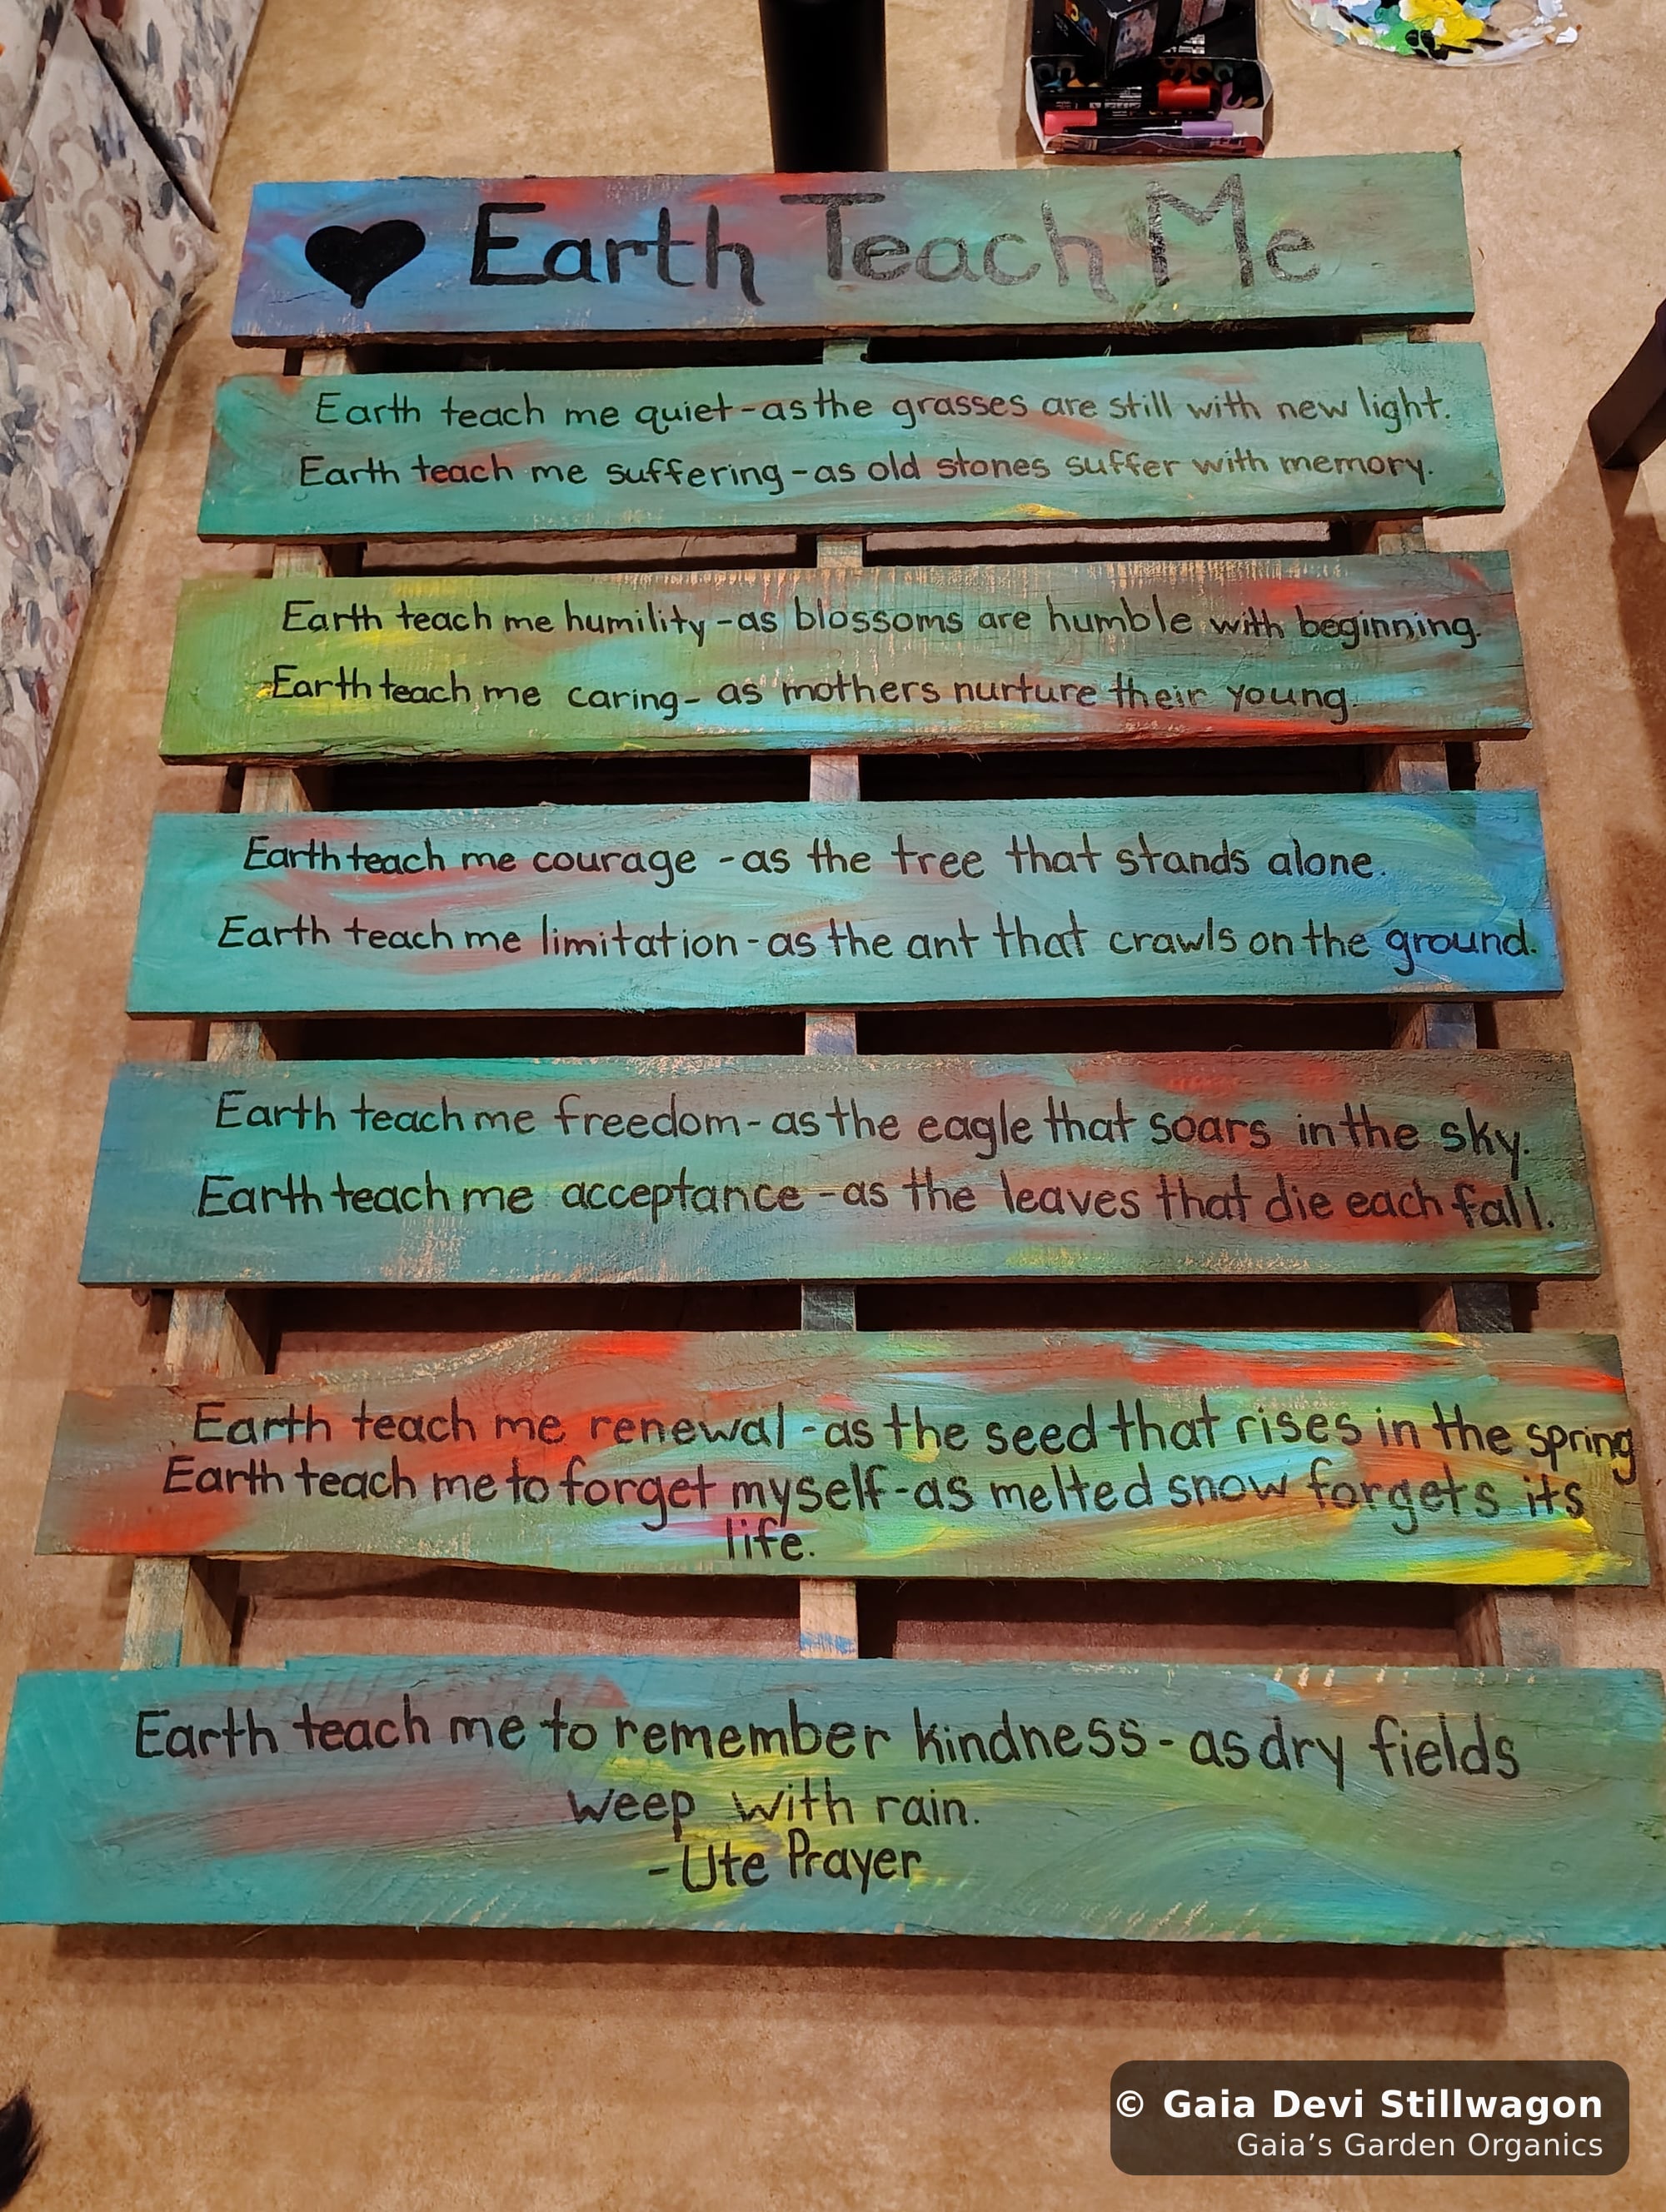 Earth Teach Me
Earth teach me quiet - as the grasses are still with new light.
Earth teach me suffering - as old stones suffer with memory.
Earth teach me humility - as blossoms are humble with beginning.
Earth teach me caring - as mothers nurture their young.
Earth teach me courage - as the tree that stands alone.
Earth teach me limitation - as the ant that crawls on the ground.
Earth teach me freedom - as the eagle that soars in the sky.
Earth teach me acceptance - as the leaves that die each fall.
Earth teach me renewal - as the seed that rises in the spring
Earth teach me to forget myself - as melted snow forgets its
life.
Earth teach me to remember kindness - as dry fields
weep with rain.
- Ute Prayer
© Gaia Devi Stillwagon
Gaia’s Garden Organics